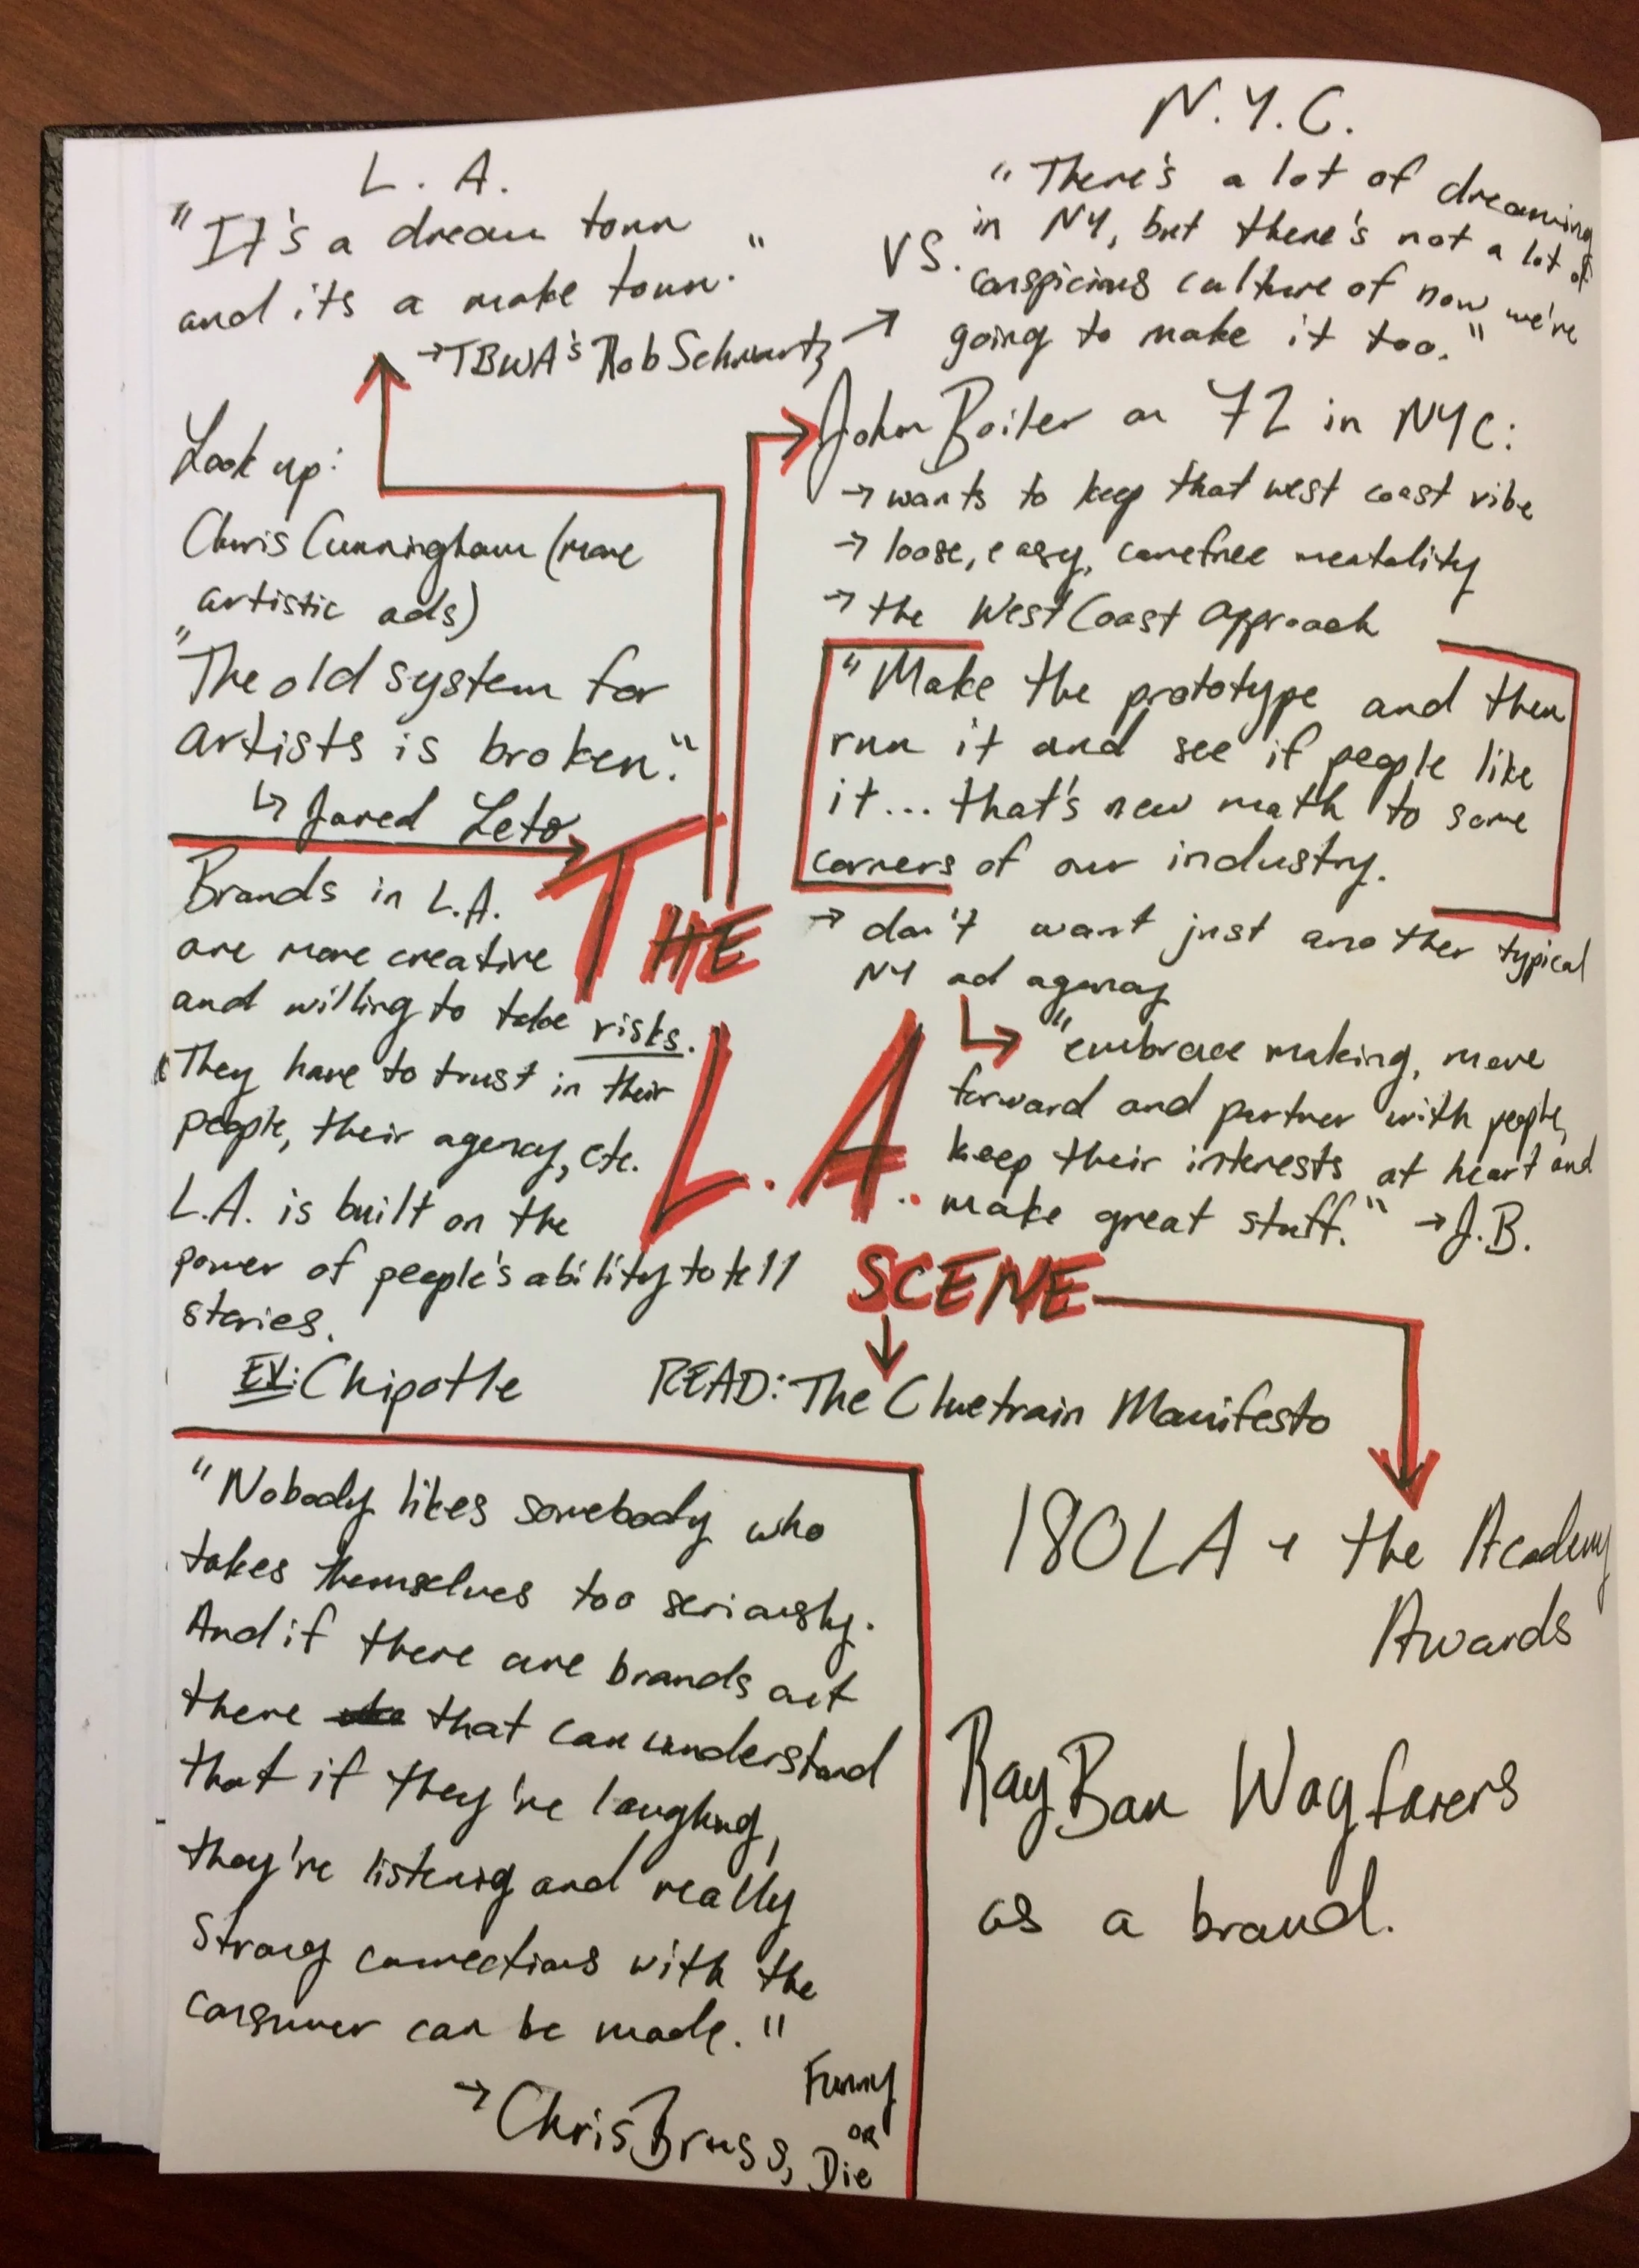 L. A.
"It's a dream town
and its a make town."
→TBWA's Rob Schwartz →
VS.
N.Y.C.
"There's a lot of dreaming
in NY, but there's not a lot of
conspicious culture of now we're
going to make it too."
Look up:
Chris Cunningham (more
artistic ads)
"The old system for
artists is broken."
↳ Jared Leto
John Boiler on 72 in NYC:
→ wants to keep that west coast vibe
→ loose, easy, carefree mentality
→ the West Coast Approach
"Make the prototype and then
run it and see if people like
it... that's new math to some
corners of our industry.
→ don't want just another typical
NY ad agency
↳ "embrace making, move
forward and partner with people,
keep their interests at heart and
make great stuff." → J.B.
THE
L.A.
SCENE
Brands in L.A.
are more creative
and willing to take risks.
They have to trust in their
people, their agency, etc.
L.A. is built on the
power of people's ability to tell
stories.
EX: Chipotle
READ: The Cluetrain Manifesto
180LA + the Academy
Awards
"Nobody likes somebody who
takes themselves too seriously.
And if there are brands out
there that can understand
that if they're laughing,
they're listening and really
strong connections with the
consumer can be made."
→ Chris Bruss, Funny
or
Die
RayBan Wayfarers
as a brand.